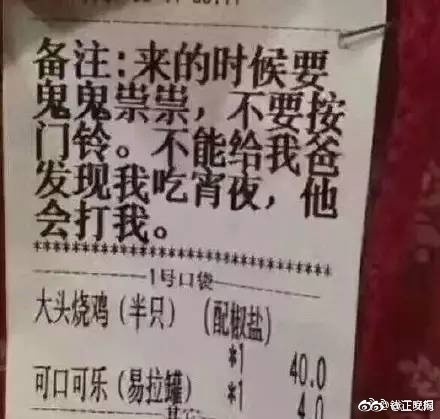 备注:来的时候要
鬼鬼祟祟，不要按
门铃。不能给我爸
发现我吃宵夜，他
会打我。
********************************
1号口袋
大头烧鸡（半只）（配椒盐）
*1 40.0
可口可乐（易拉罐） *1 4.0
其它